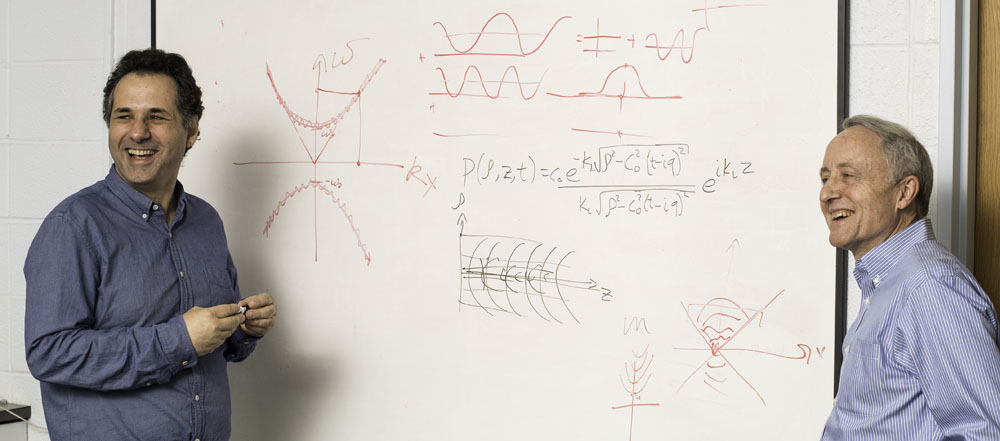 ω
= +
-ω₀
k_x
P(ρ,z,t)=c₀ e^{-k_⊥√(ρ²-c₀²(t-iq)²)} / k_⊥√(ρ²-c₀²(t-iq)²) e^{ik_⊥z}
ρ
z
m
x